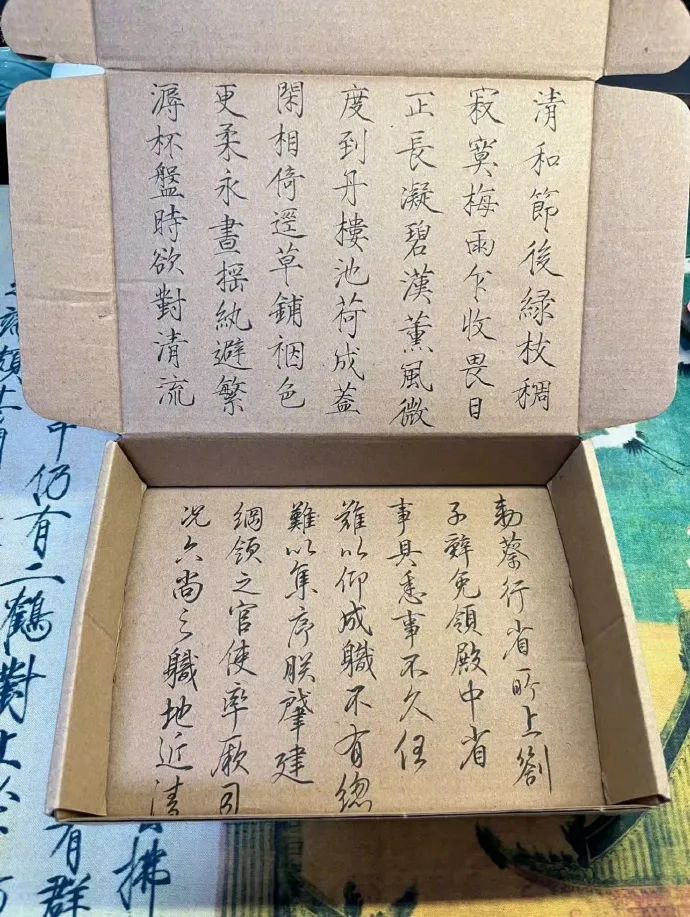 清和節後緑枝稠
寂寞梅雨乍收畏日
正長凝碧漢薰風微
度到丹樓池荷成蓋
閑相倚逕草鋪裀色
更柔永晝揺紈避繁
溽杯盤時欲對清流
勅蔡行省所上劄
子辭免領殿中省
事具悉事不久任
難以仰成職不有總
難以集序朕肇建
綱領之官使率厥司
況六尚之職地近清
拂
有群
中仍有二鶴對止於
端頗